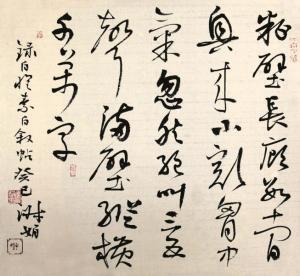 粉壁長廊數十間
興來小豁胸中
氣忽然絕叫三五
聲滿壁縱橫
千萬字
録自懷素自叙帖癸巳
娟